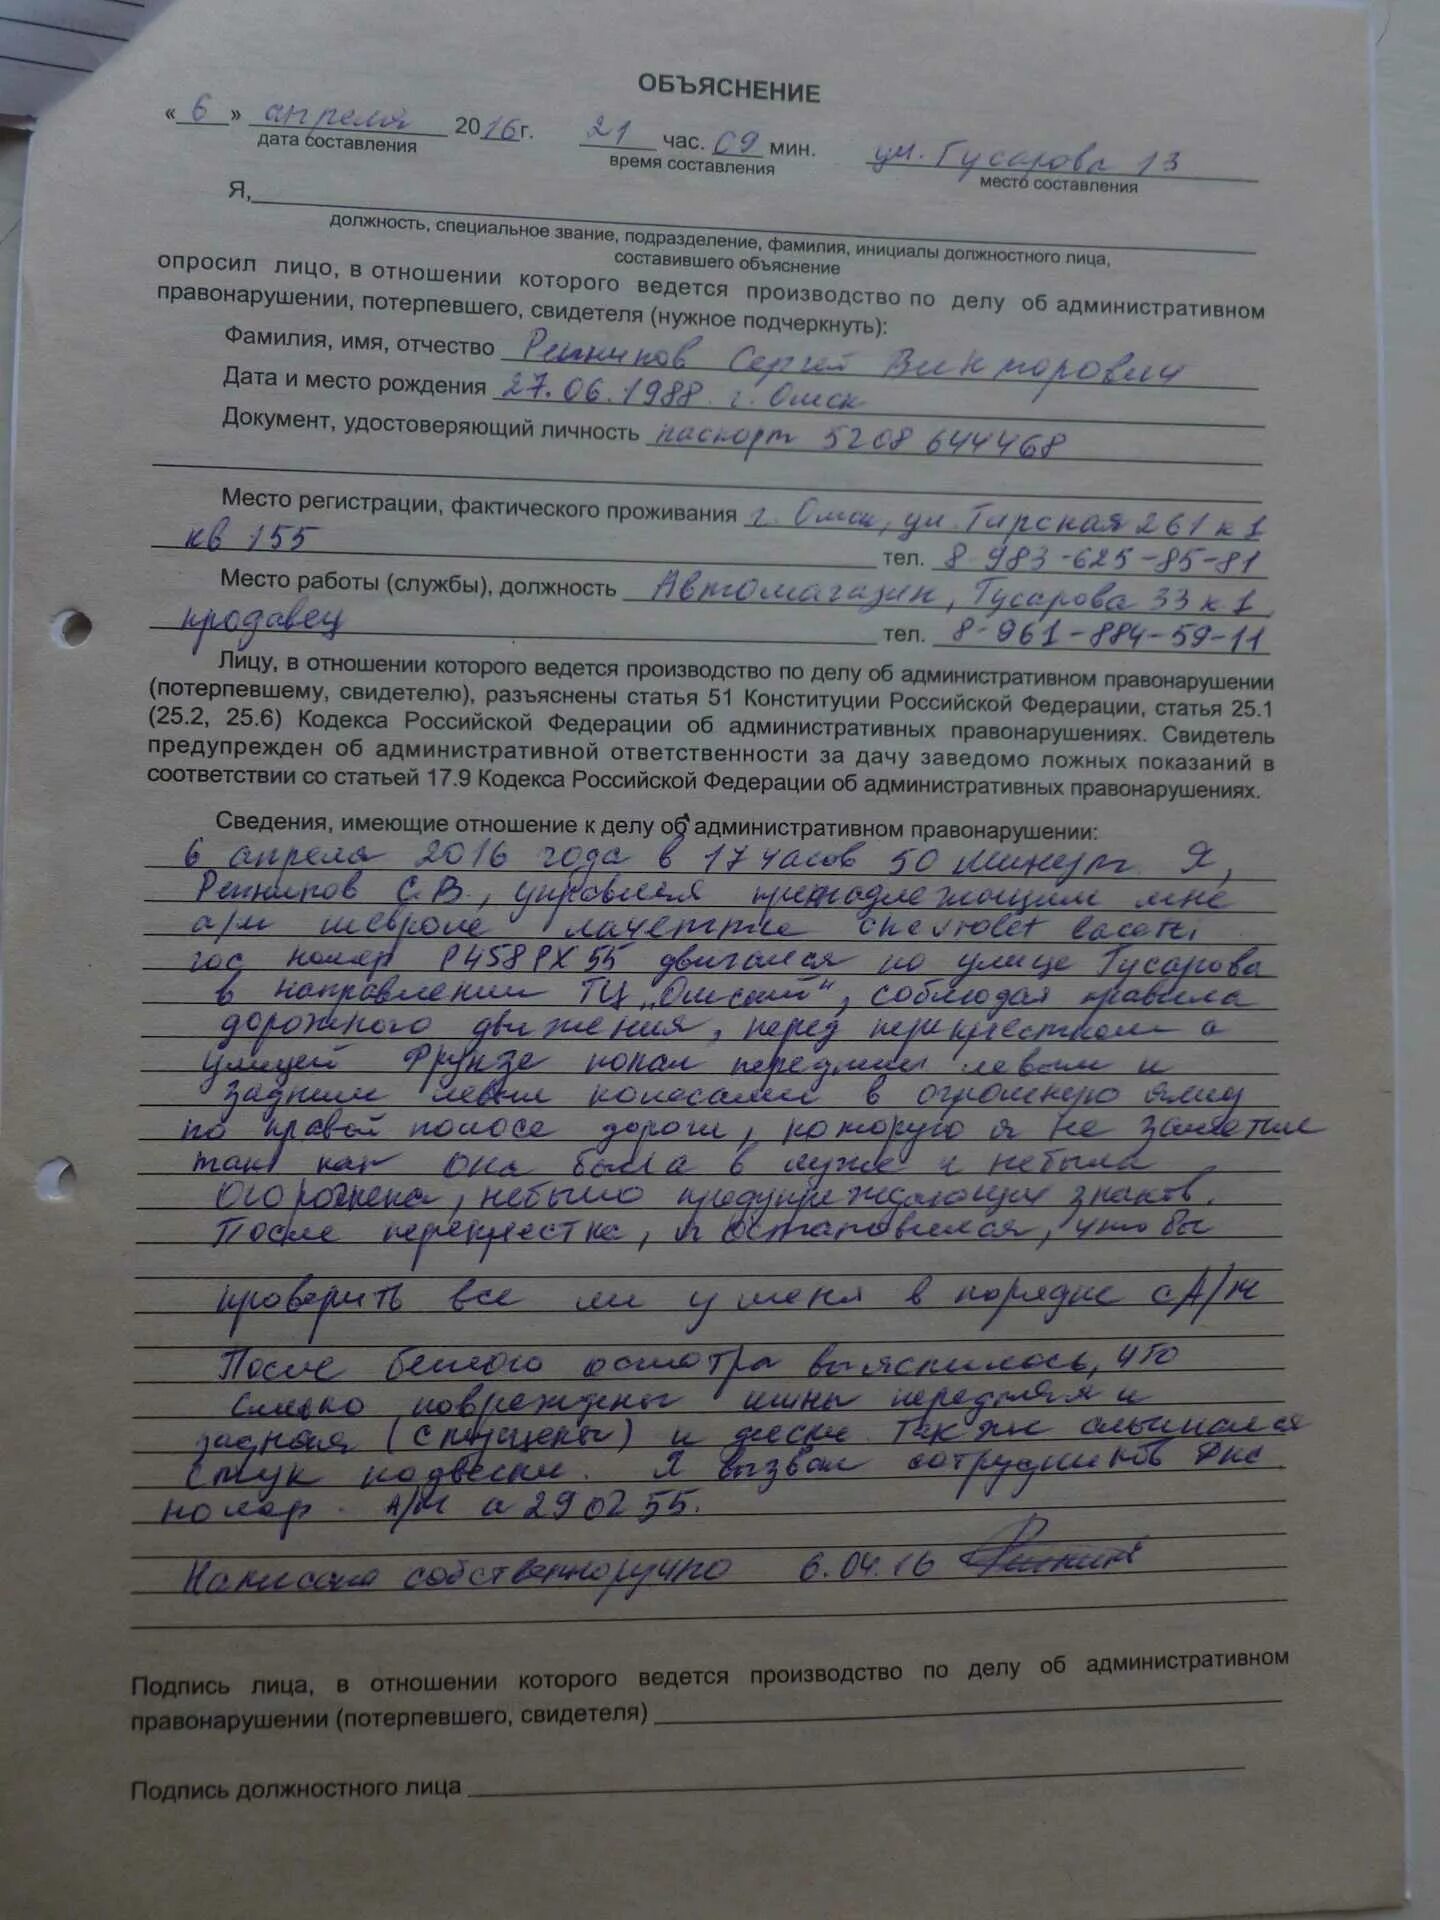 ОБЪЯСНЕНИЕ
« 6 » апреля 2016г. 21 час. 09 мин. ул. Гусарова 13
дата составления время составления место составления
Я,
должность, специальное звание, подразделение, фамилия, инициалы должностного лица,
составившего объяснение
опросил лицо, в отношении которого ведется производство по делу об административном
правонарушении, потерпевшего, свидетеля (нужное подчеркнуть):
Фамилия, имя, отчество Сергей Викторович
Дата и место рождения 27.06.1988 г. Омск
Документ, удостоверяющий личность паспорт 5208 644468
Место регистрации, фактического проживания г. Омск, ул. 261 к 1
кв 155 тел. 8-983-625-85-81
Место работы (службы), должность Автомагазин, Гусарова 33 к.1
продавец тел. 8-961-884-59-11
Лицу, в отношении которого ведется производство по делу об административном правонарушении
(потерпевшему, свидетелю), разъяснены статья 51 Конституции Российской Федерации, статья 25.1
(25.2, 25.6) Кодекса Российской Федерации об административных правонарушениях. Свидетель
предупрежден об административной ответственности за дачу заведомо ложных показаний в
соответствии со статьей 17.9 Кодекса Российской Федерации об административных правонарушениях.
Сведения, имеющие отношение к делу об административном правонарушении:
6 апреля 2016 года в 17 часов 50 минут Я,
С.В., управляя принадлежащим мне
а/м шевроле лачетти Chevrolet Lacetti
гос номер Р458РХ 55 двигался по улице Гусарова
в направлении ТЦ „Омский", соблюдая правила
дорожного движения, перед перекрестком с
улицей Фрунзе попал передним левым и
задним левым колесами в огромную яму
по правой полосе дороги, которую я не заметил
так как она была в луже и небыла
огорожена, небыло предупреждающих знаков.
После перекрестка, я остановился, чтобы
проверить все ли у меня в порядке с А/м
После беглого осмотра выяснилось, что
сильно повреждены шины передняя и
задняя (спущены) и диски. Также слышался
стук подвески. Я вызвал сотрудников ДПС
номер А/м 290255.
Написано собственноручно 6.04.16
Подпись лица, в отношении которого ведется производство по делу об административном
правонарушении (потерпевшего, свидетеля)
Подпись должностного лица